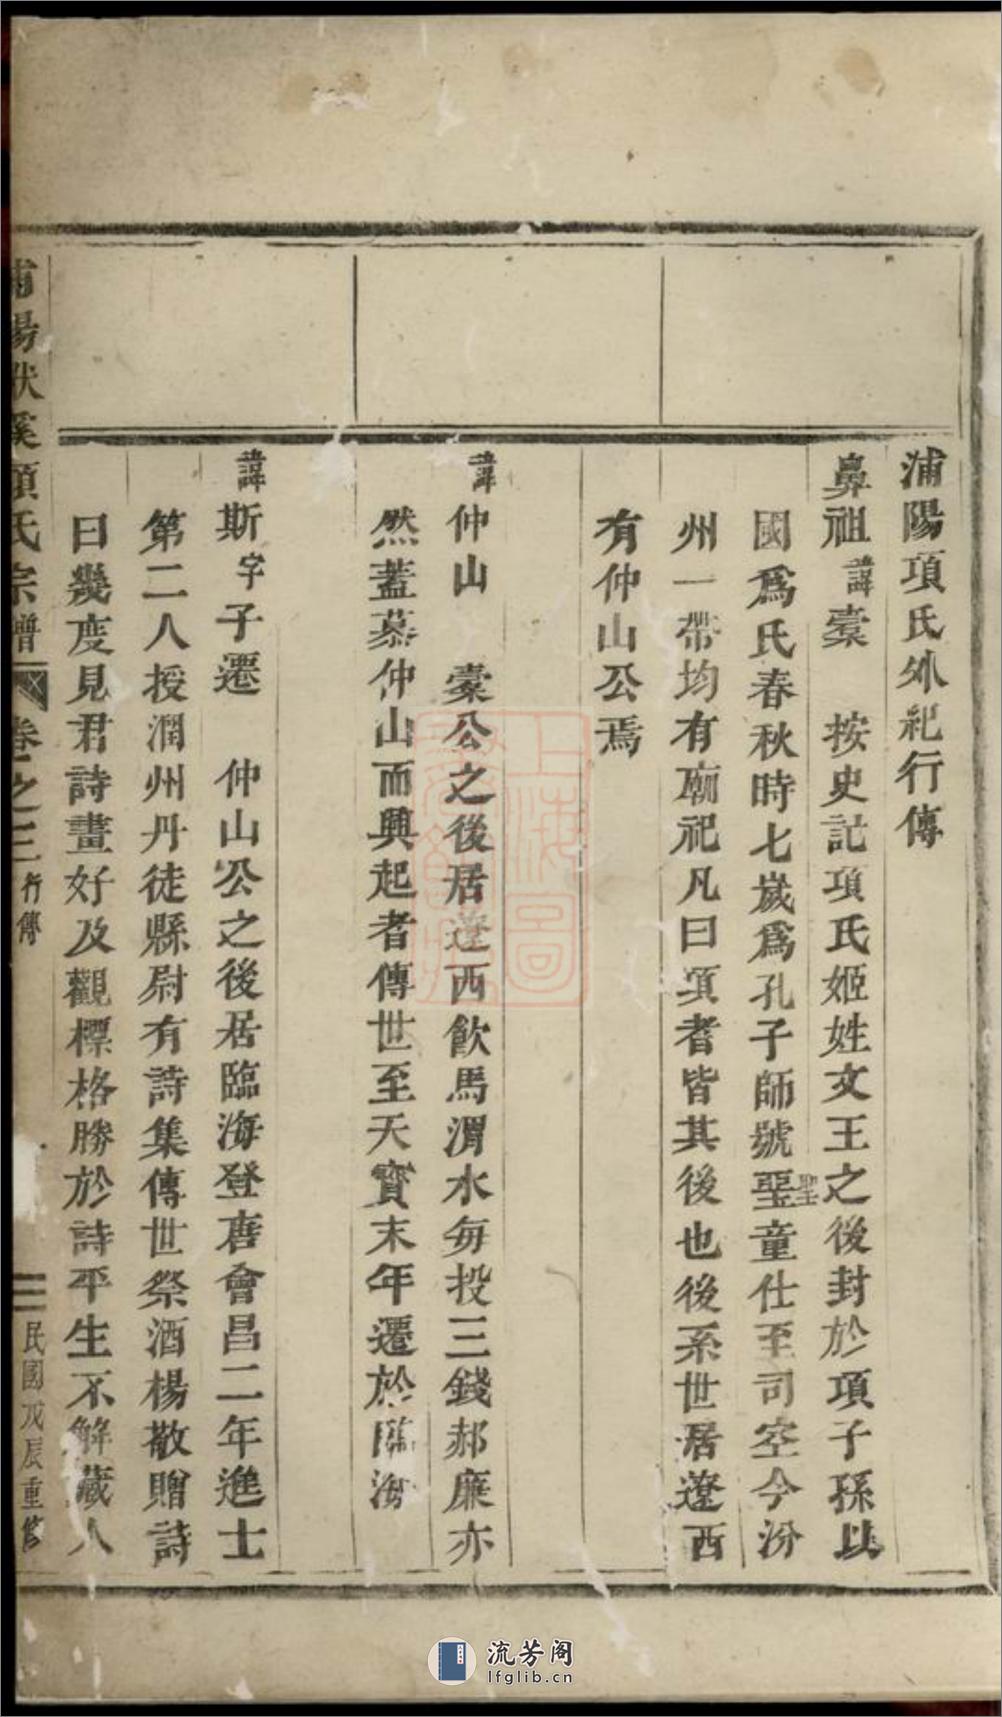 浦陽項氏外祀行傳
鼻祖諱橐 按史記項氏姬姓文王之後封於項子孫以
國爲氏春秋時七歲爲孔子師號聖童仕至司空今汾
聖
州一帶均有廟祀凡曰項者皆其後也後系世居遼西
有仲山公焉
諱仲山 橐公之後居遼西飲馬渭水每投三錢郝廉亦
然蓋慕仲山而興起者傳世至天寶末年遷於臨海
諱斯字子遷 仲山公之後居臨海登唐會昌二年進士
第二人授潤州丹徒縣尉有詩集傳世祭酒楊敬贈詩
曰幾度見君詩畫好及觀標格勝於詩平生不解藏人
浦陽狀溪項氏宗譜 卷之三 行傳 二 民國戊辰重修
上海圖
流芳阁
lfglib.cn